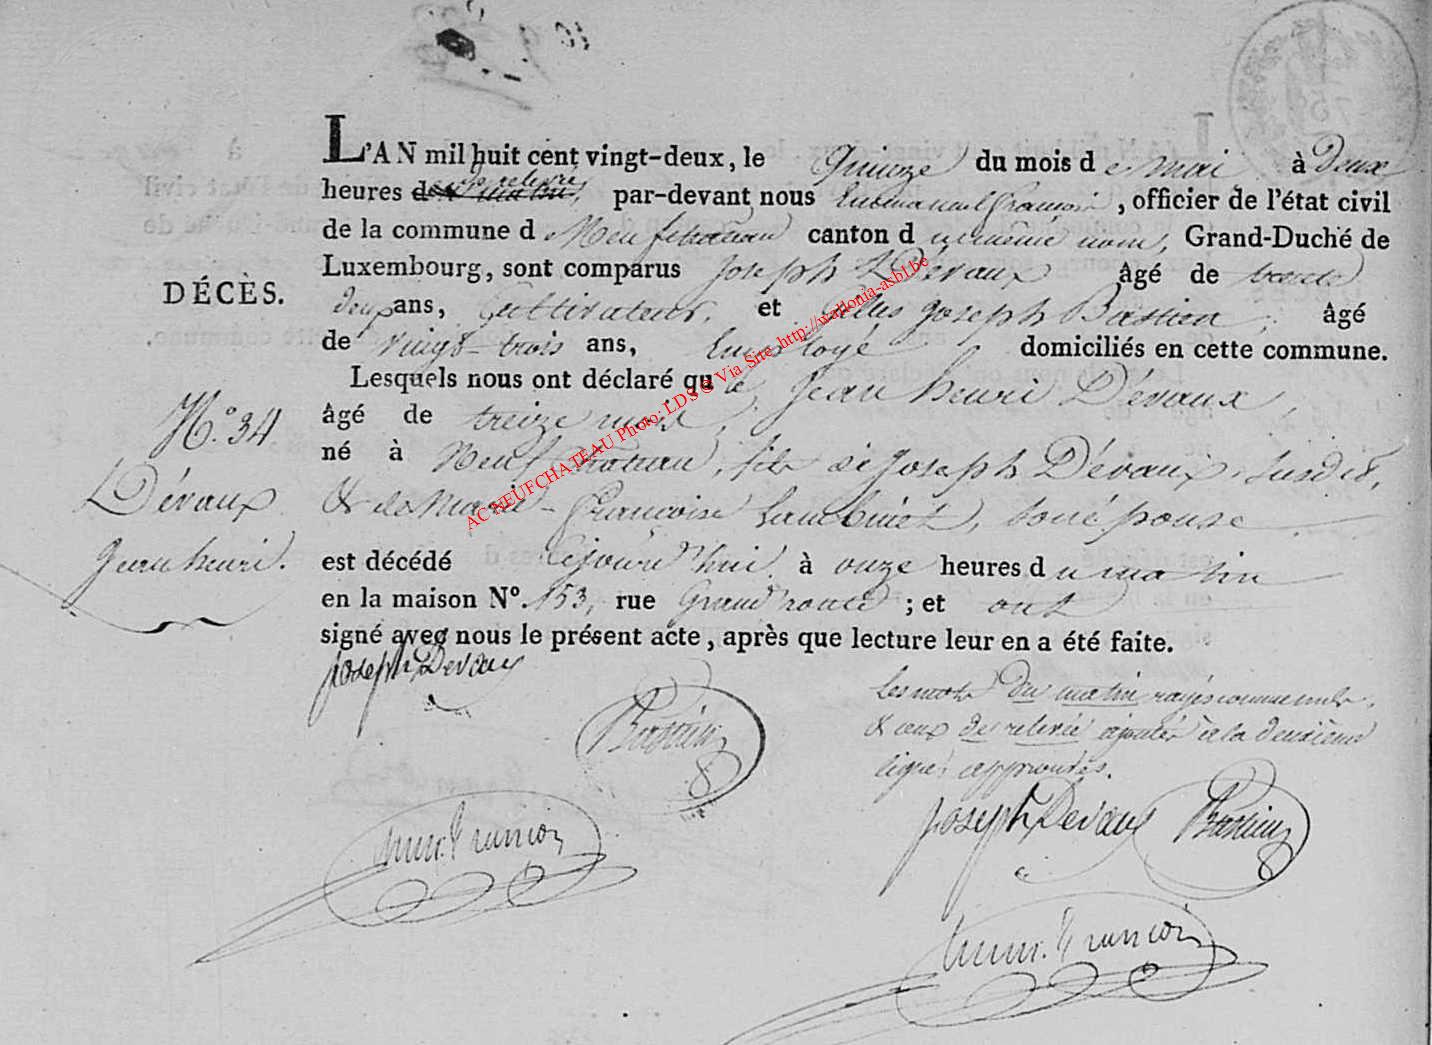 L'AN mil huit cent vingt-deux, le quinze du mois de mai à deux
heures de relevée du matin, par-devant nous Emmanuel François, officier de l'état civil
de la commune de Neufchateau canton du même nom, Grand-Duché de
Luxembourg, sont comparus Joseph Dévaux âgé de trente
DÉCÈS.
deux ans, Cultivateur, et Gilles Joseph Bastien, âgé
de vingt-trois ans, Employé domiciliés en cette commune.
Lesquels nous ont déclaré que Jean henri Dévaux,
N.° 34
âgé de treize mois,
né à Neufchateau, fils de Joseph Dévaux susdit,
Dévaux
& de Marie-Françoise Lambinet, son épouse
Jean henri.
est décédé cejourd'hui à onze heures du matin
en la maison N° 153, rue Grand'route ; et ont
signé avec nous le présent acte, après que lecture leur en a été faite.
Joseph Devaux
Bastien
Emm. François
Les mots du matin rayés comme nuls,
& ceux de relevée ajoutés à la deuxième
ligne approuvés.
Joseph Devaux Bastien
Emm. François
AC NEUFCHATEAU Photo: LDS© Via Site http://wallonia-asbl.be